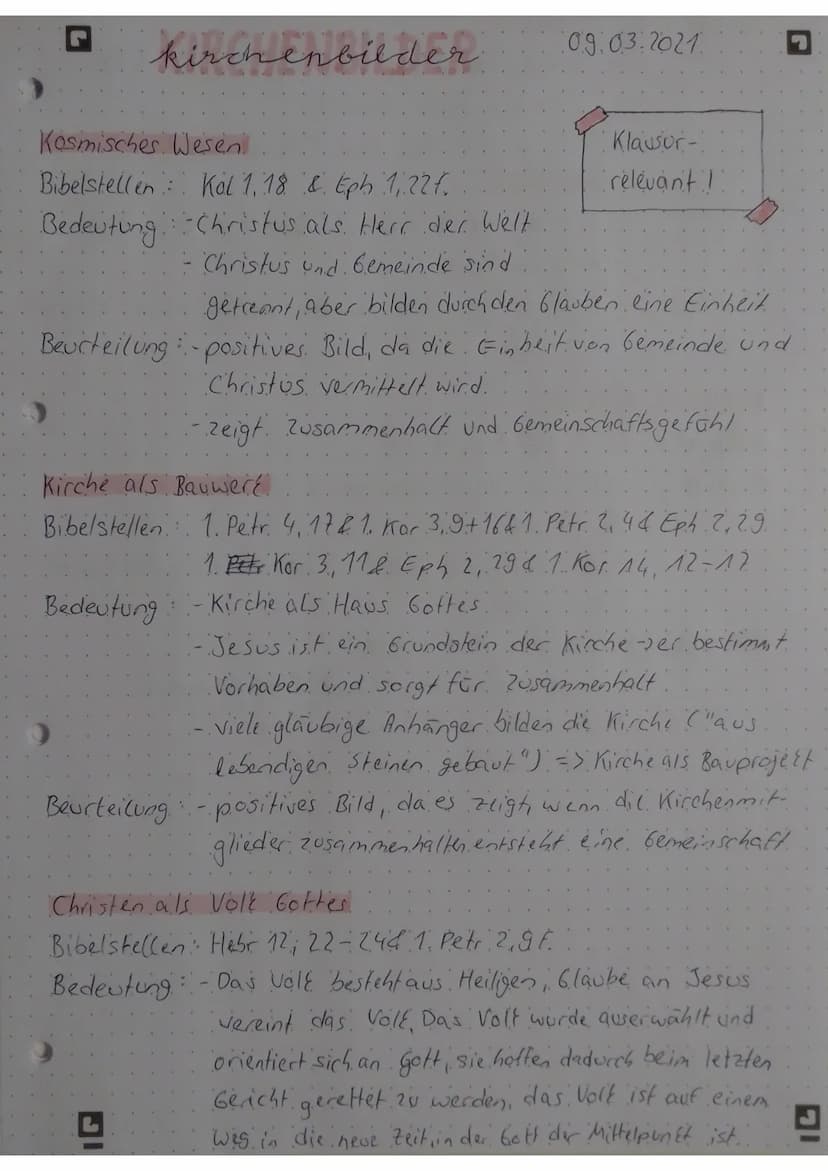 Kirchenbilder
09.03.2021
Klausur-
relevant!
Kosmisches Wesen
Bibelstellen: Kol 1,18 & Eph 1,22f.
Bedeutung: - Christus als Herr der Welt
- Christus und Gemeinde sind
getrennt, aber bilden durch den Glauben eine Einheit
Beurteilung: - positives Bild, da die Einheit von Gemeinde und
Christus vermittelt wird.
- zeigt Zusammenhalt und Gemeinschaftsgefühl
Kirche als Bauwerk
Bibelstellen: 1. Petr. 4,17 & 1. Kor 3,9+16 & 1. Petr. 2,4 & Eph 2,29
1. Kor. 3,11 & Eph 2,29 & 1. Kor. 14, 12-17
Bedeutung: - Kirche als Haus Gottes
- Jesus ist ein Grundstein der Kirche -> er bestimmt
Vorhaben und sorgt für Zusammenhalt
- viele gläubige Anhänger bilden die Kirche ("aus
lebendigen Steinen gebaut") => Kirche als Bauprojekt
Beurteilung: - positives Bild, da es zeigt, wenn die Kirchenmit-
glieder zusammenhalten entsteht eine Gemeinschaft
Christen als Volk Gottes
Bibelstellen: Hebr 12, 22-24 & 1. Petr 2,9f.
Bedeutung: - Das Volk besteht aus Heiligen, Glaube an Jesus
vereint das Volk, Das Volk wurde auserwählt und
orientiert sich an Gott, sie hoffen dadurch beim letzten
Gericht gerettet zu werden, das Volk ist auf einem
Weg in die neue Zeit, in der Gott der Mittelpunkt ist.